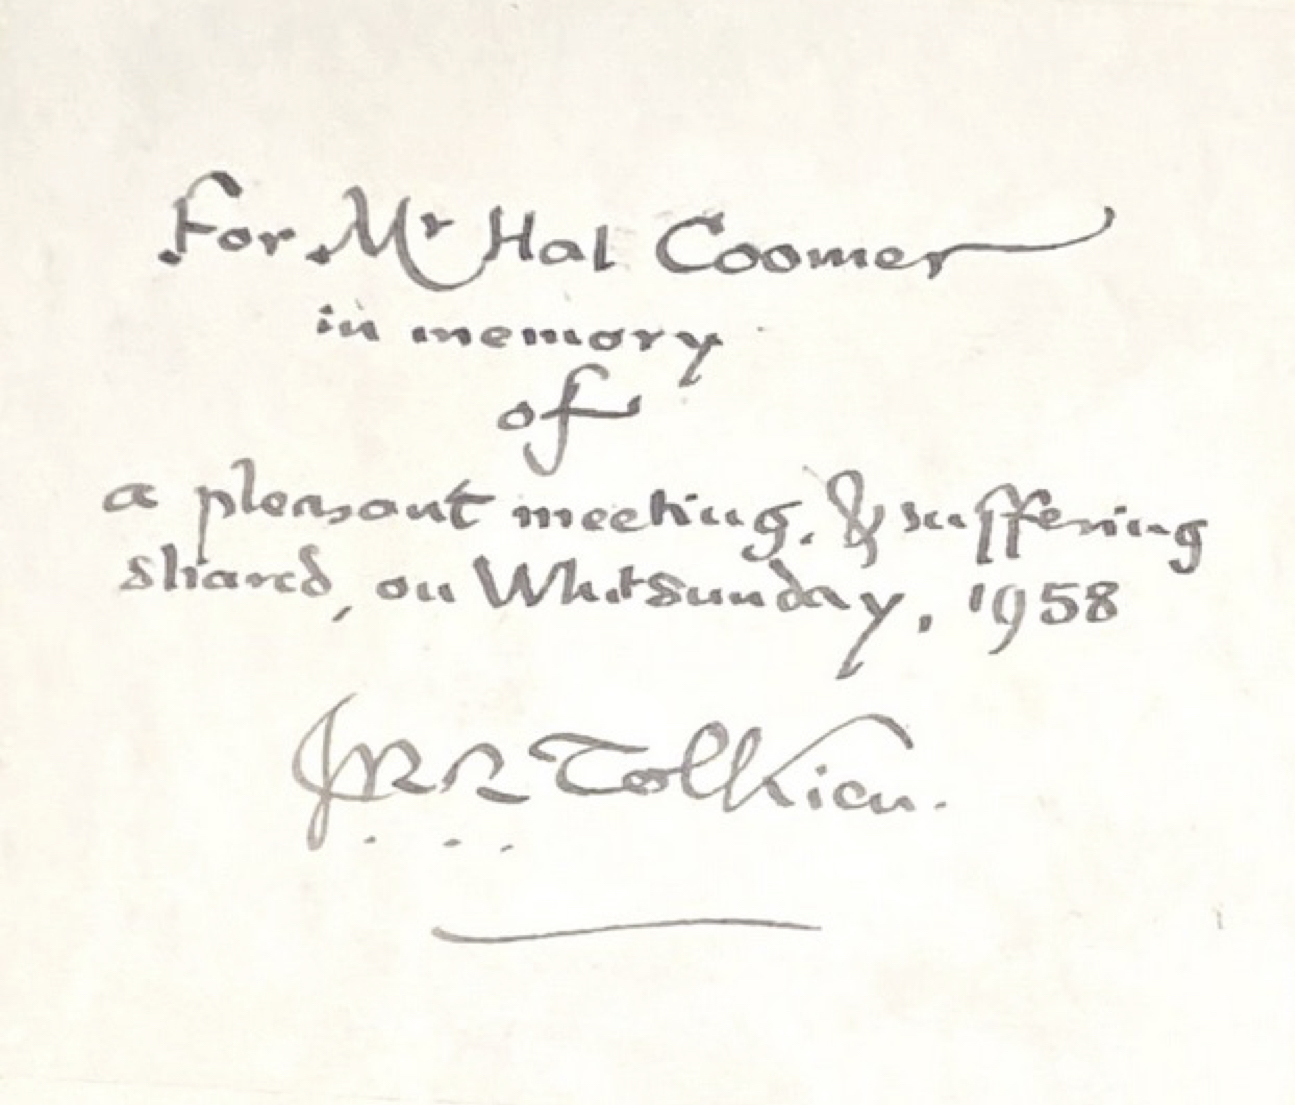 For Mr Hal Coomer
in memory
of
a pleasant meeting, & suffering
shared, on Whitsunday, 1958
JRR Tolkien.